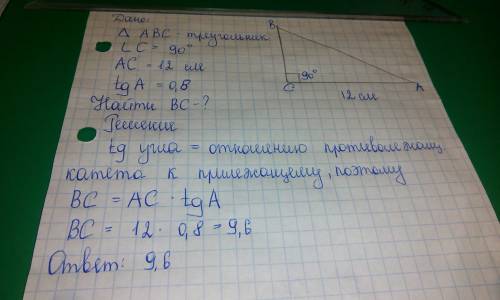 Дано:
Δ ABC - треугольник
∠C = 90°
AC = 12 см
tg A = 0,8
Найти BC-?
Решение
tg угла = отношению противолежащ.
катета к прилежащему, поэтому
BC = AC · tg A
BC = 12 · 0,8 = 9,6
Ответ: 9,6
B
90°
C
12 см
A